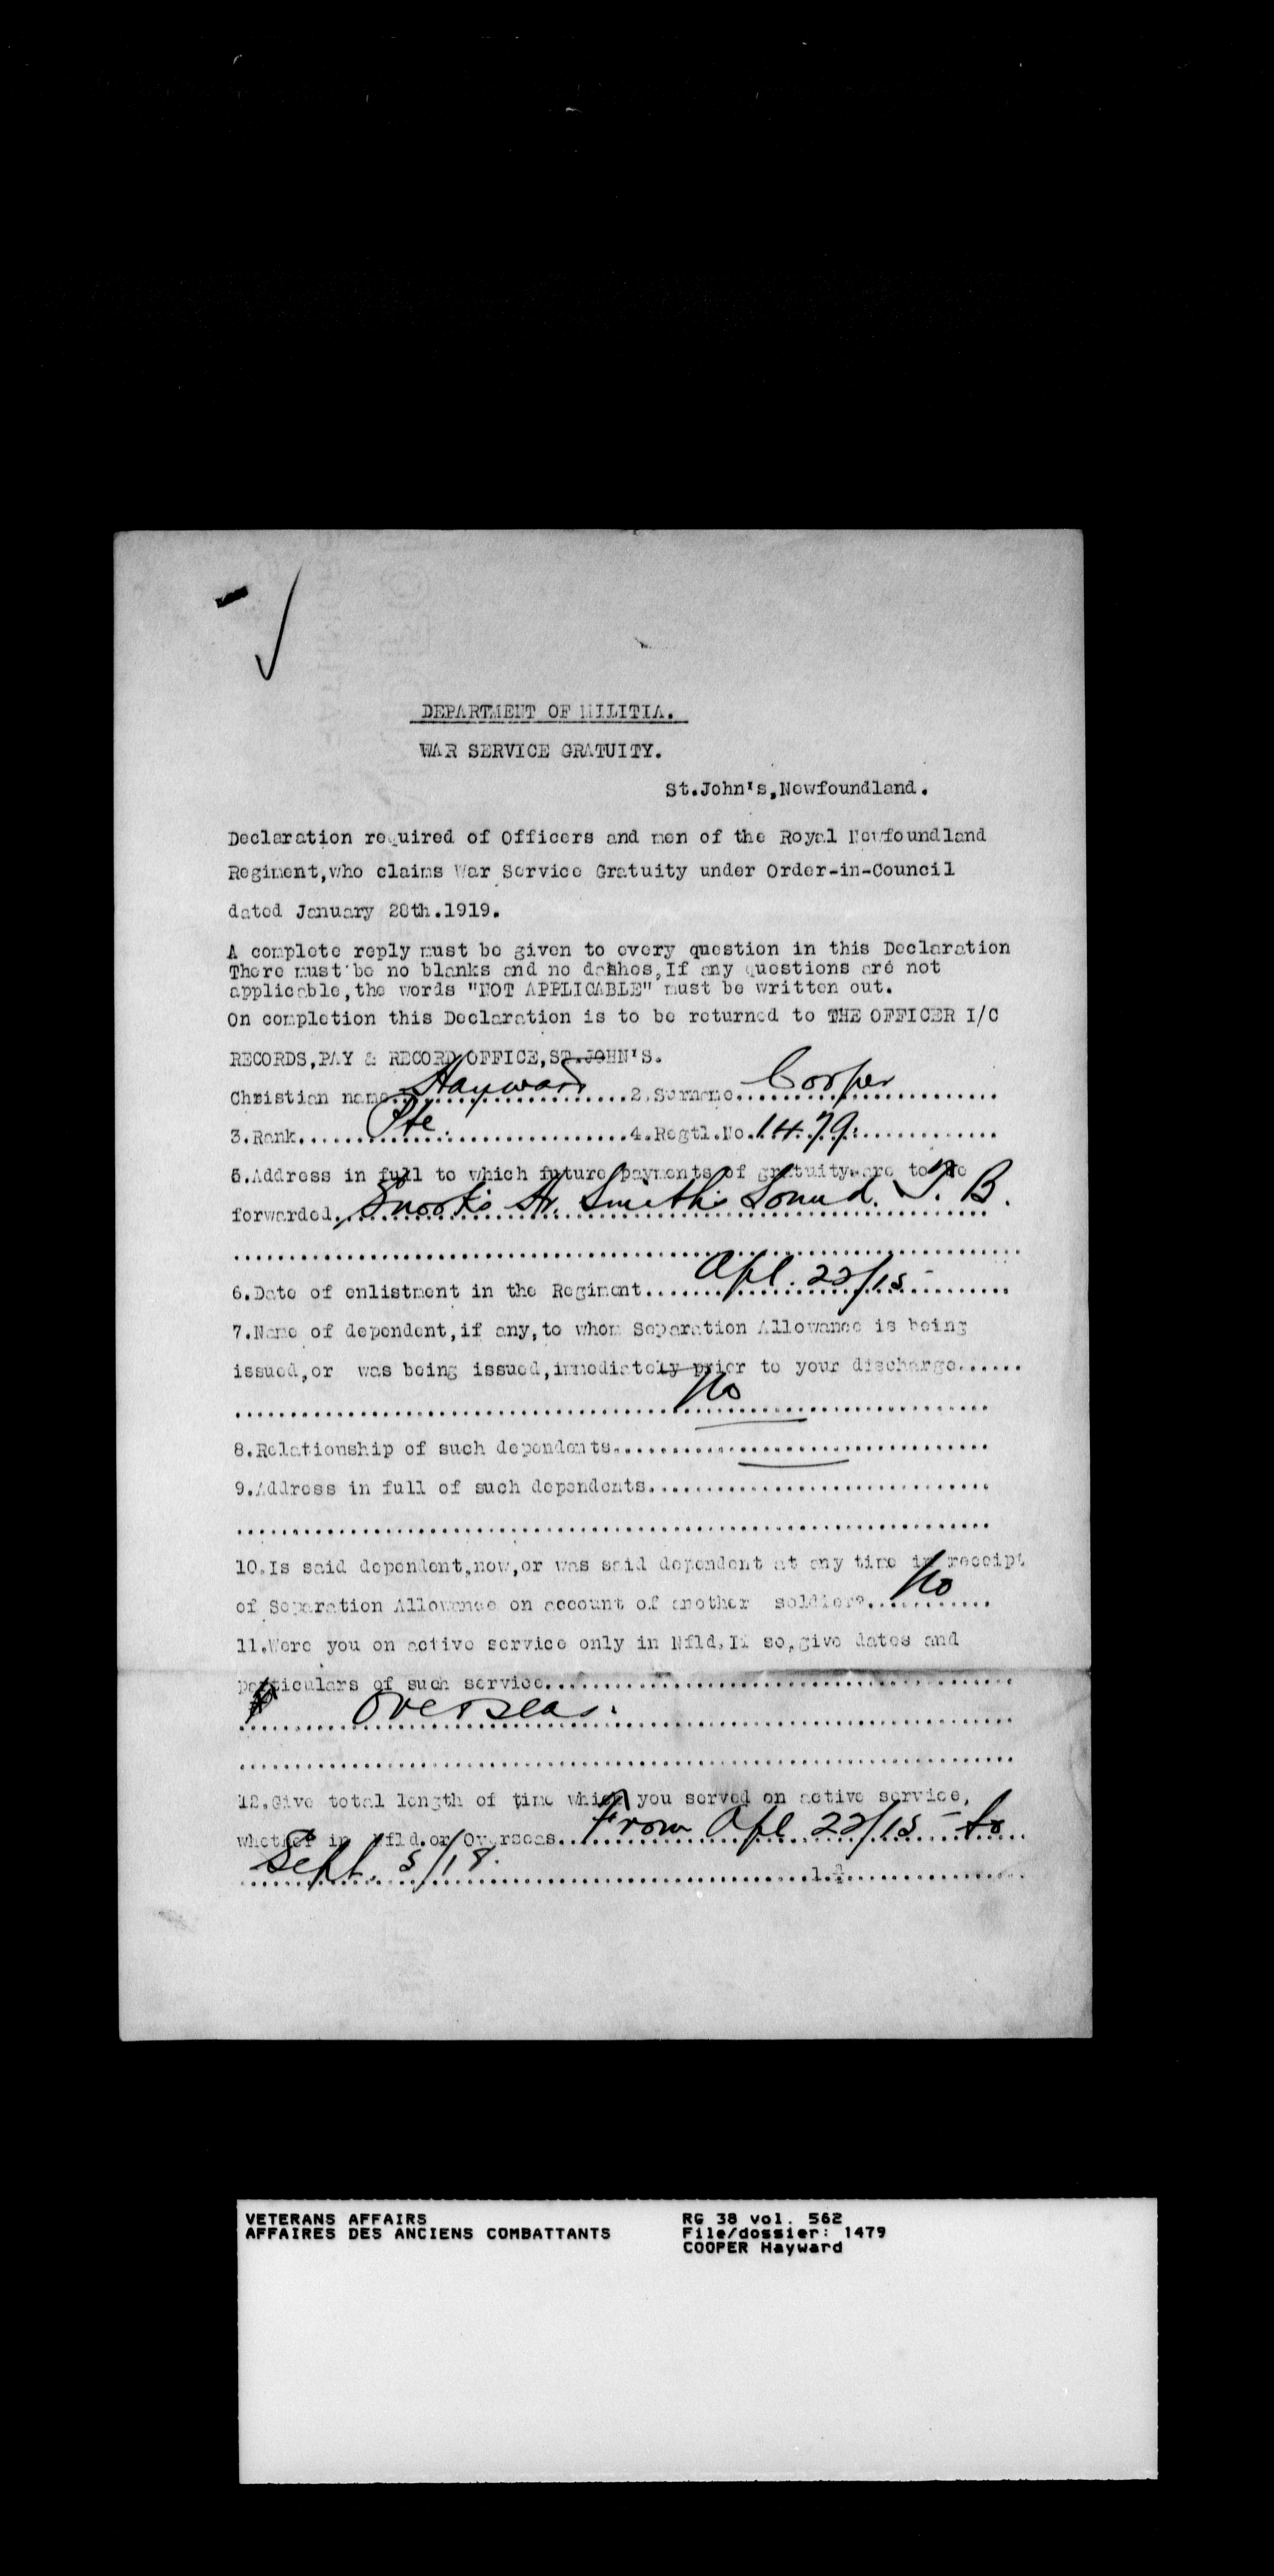 DEPARTMENT OF MILITIA.
WAR SERVICE GRATUITY.
St.John's,Newfoundland.
Declaration required of Officers and men of the Royal Newfoundland
Regiment,who claims War Service Gratuity under Order-in-Council
dated January 28th.1919.
A complete reply must be given to every question in this Declaration
There must be no blanks and no dashes,If any questions are not
applicable,the words "NOT APPLICABLE" must be written out.
On completion this Declaration is to be returned to THE OFFICER I/C
RECORDS,PAY & RECORD OFFICE,ST.JOHN'S.
Christian name Hayward 2.Surname Cooper
3.Rank Pte. 4.Regtl.No. 1479.
5.Address in full to which future payments of gratuity are to be
forwarded. Snook's Hr. Smith's Sound. T. B.
6.Date of enlistment in the Regiment Apl. 22/15
7.Name of dependent,if any,to whom Separation Allowance is being
issued,or was being issued,immediately prior to your discharge
No
8.Relationship of such dependents
9.Address in full of such dependents
10.Is said dependent,now,or was said dependent at any time in receipt
of Separation Allowance on account of another soldier? No
11.Were you on active service only in Nfld,If so,give dates and
particulars of such service
Overseas.
12.Give total length of time which you served on active service,
whether in Nfld.or Overseas. From Apl 22/15 to
Sept. 5/18.
VETERANS AFFAIRS RG 38 vol. 562
AFFAIRES DES ANCIENS COMBATTANTS File/dossier: 1479
COOPER Hayward